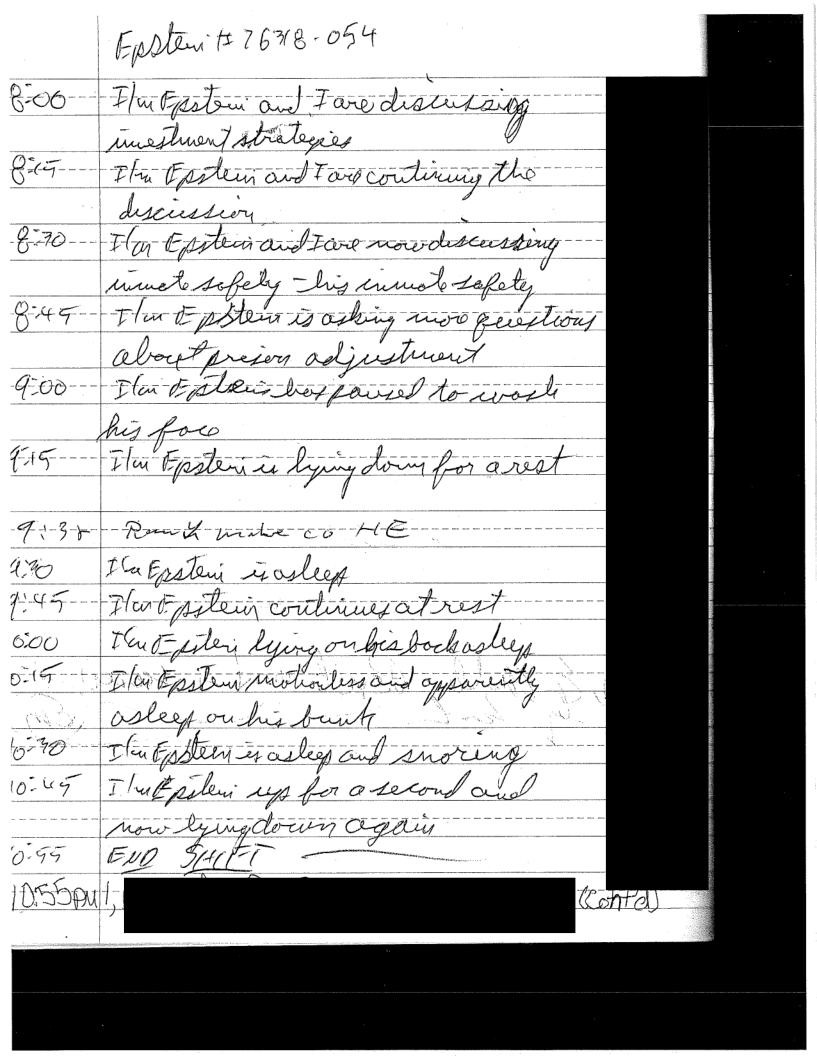 Epstein # 76318-054
8:00 I/m Epstein and I are discussing
investment strategies
8:15 I/m Epstein and I are continuing the
discussion
8:30 I/m Epstein and I are now discussing
inmate safety - his inmate safety
8:45 I/m Epstein is asking more questions
about prison adjustment
9:00 I/m Epstein has paused to wash
his face
9:15 I/m Epstein is lying down for a rest
make co
9:30 I/m Epstein is asleep
9:45 I/m Epstein continues at rest
0:00 I/m Epstein lying on his back asleep
0:15 I/m Epstein motionless and apparently
asleep on his bunk
10:30 I/m Epstein is asleep and snoring
10:45 I/m Epstein up for a second and
now lying down again
0:55 END SHIFT
10:55pm I, (Cont'd)